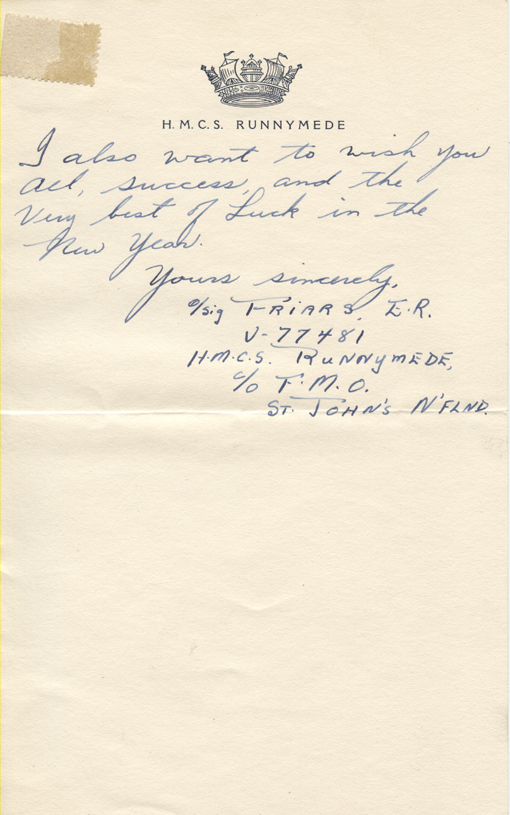 H.M.C.S. RUNNYMEDE
I also want to wish you
all, success, and the
Very best of Luck in the
New Year.
Yours sincerely,
o/sig FRIARS, E.R.
V-77481
H.M.C.S. RUNNYMEDE,
c/o F.M.O.
ST. JOHN'S N'FLND.